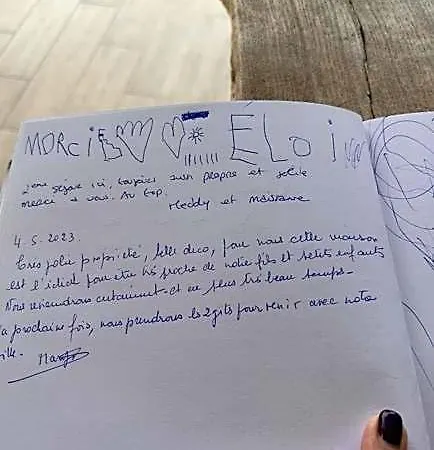 MORCi ÉLOi
2ème séjour ici, toujours aussi propre et
merci à vous. Au top.
Heddy et Maissane
4.5.2023.
Très jolie propriété, belle déco, pour nous cette maison
est l'idéal pour être très proche de notre fils et petits enfants
Nous reviendrons certainement et en plus très beau temps-
la prochaine fois, nous prendrons les 2 gîts pour venir avec notre
fille.